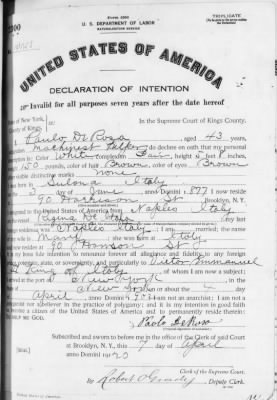 Form 2203
U. S. DEPARTMENT OF LABOR
NATURALIZATION SERVICE
TRIPLICATE
UNITED STATES OF AMERICA
DECLARATION OF INTENTION
Invalid for all purposes seven years after the date hereof
State of New York,
County of Kings,
In the Supreme Court of Kings County.
Paulo De Rosa, aged 43 years,
occupation Machinist Helper, do declare on oath that my personal
description is: Color White, complexion Fair, height 5 feet 8 inches,
weight 150 pounds, color of hair Brown, color of eyes Brown
other visible distinctive marks none
I was born in Italy
on the 3 day of June, anno Domini 1877; I now reside
at 90 Harrison St, Brooklyn, N. Y.
I emigrated to the United States of America from Naples Italy
my last foreign residence was Naples Italy; I am married; the name
of my wife is Marie; she was born in Italy
and now resides at 90 Harrison St
It is my bona fide intention to renounce forever all allegiance and fidelity to any foreign
prince, potentate, state, or sovereignty, and particularly to Victor Emmanuel
III King of Italy, of whom I am now a subject;
I arrived at the port of New York, in the
State of New York, on or about the day
of April, anno Domini; I am not an anarchist; I am not a
polygamist nor a believer in the practice of polygamy; and it is my intention in good faith
to become a citizen of the United States of America and to permanently reside therein:
SO HELP ME GOD.
Paolo DeRosa
Subscribed and sworn to before me in the office of the Clerk of said Court
at Brooklyn, N. Y., this 7 day of April
anno Domini 1920
[SEAL]
Clerk of the Supreme Court.
By Robert O'Grady, Deputy Clerk.